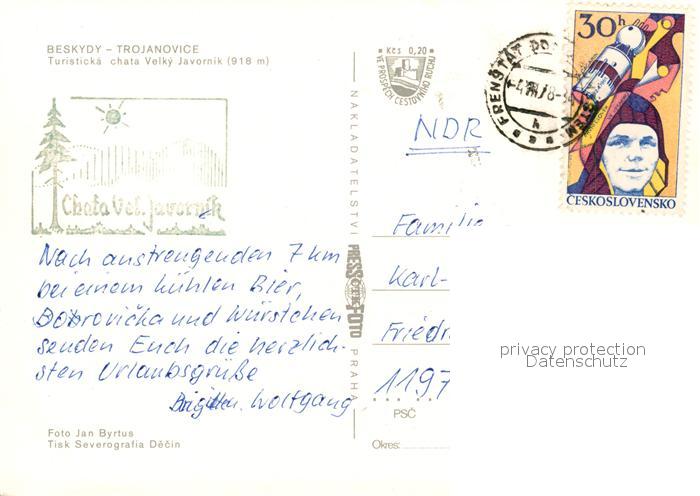 BESKYDY – TROJANOVICE
Turistická chata Velký Javorník (918 m)
Chata Vel. Javorník
Nach anstrengenden 7 km
bei einem kühlen Bier,
Borovička und Würstchen
senden Euch die herzlich-
sten Urlaubsgrüße
Brigitte u. Wolfgang
Foto Jan Byrtus
Tisk Severografia Děčín
NAKLADATELSTVÍ
PRESSFOTO
PRAHA
Kčs 0,20
VE PROSPĚCH CESTOVNÍHO RUCHU
FRENŠTÁT POD
30h
ČESKOSLOVENSKO
NDR
Familie
Karl-
Friedr
1197
PSČ
Okres:
privacy protection
Datenschutz